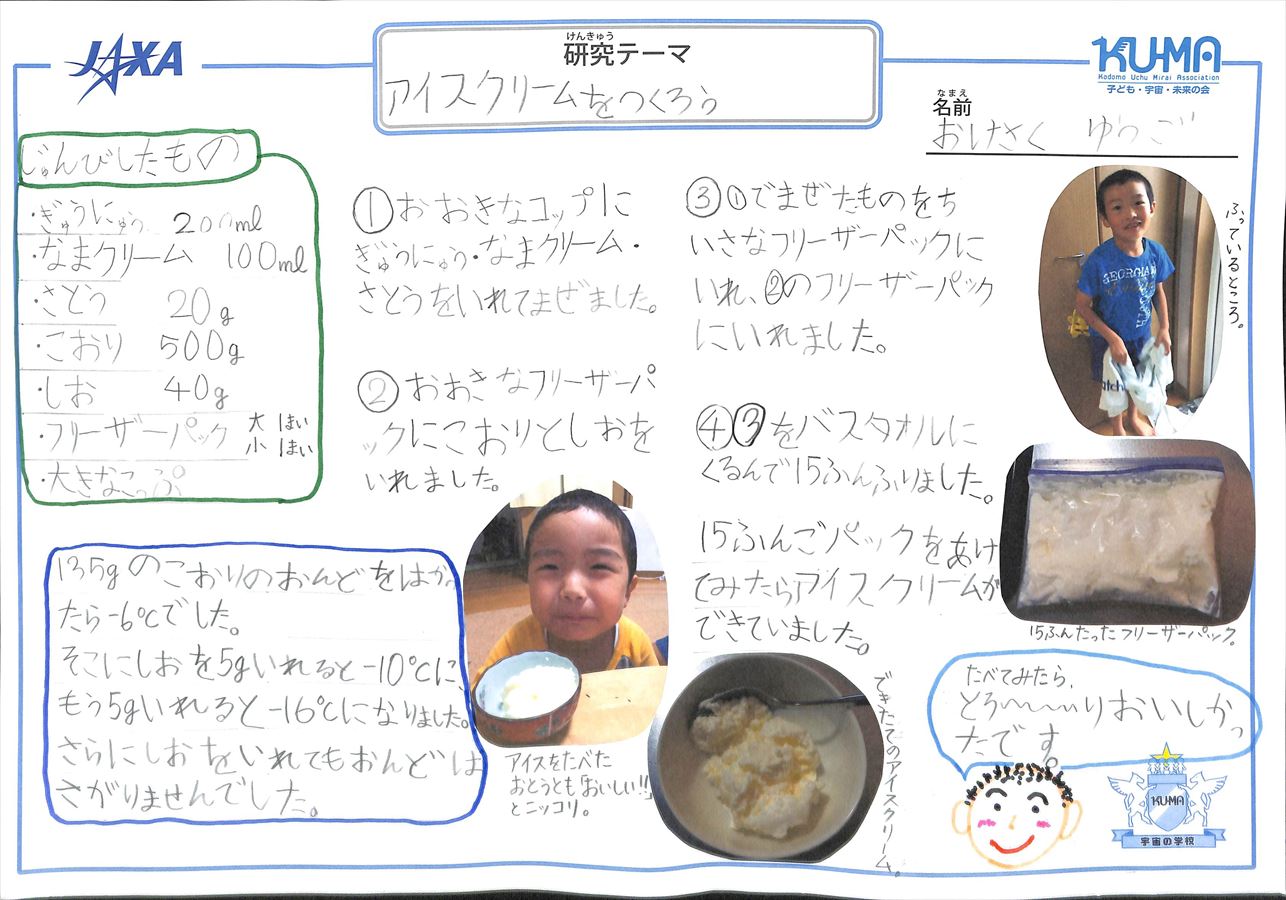 JAXA
けんきゅう
研究テーマ
アイスクリームをつくろう
KU-MA
Kodomo Uchu Mirai Association
子ども・宇宙・未来の会
なまえ
名前
おけさく ゆうご
じゅんびしたもの
・ぎゅうにゅう 200ml
・なまクリーム 100ml
・さとう 20g
・こおり 500g
・しお 40g
・フリーザーパック 大 1まい
小 1まい
・大きなこっぷ
①おおきなコップに
ぎゅうにゅう・なまクリーム・
さとうをいれてまぜました。
②おおきなフリーザーパ
ックにこおりとしおを
いれました。
③①でまぜたものをち
いさなフリーザーパックに
いれ、②のフリーザーパック
にいれました。
④③をバスタオルに
くるんで15ふんふりました。
15ふんごパックをあけ
てみたらアイスクリームが
できていました。
ふっているところ。
15ふんたったフリーザーパック。
135gのこおりのおんどをはかっ
たら-6℃でした。
そこにしおを5gいれると-10℃に、
もう5gいれると-16℃になりました。
さらにしおをいれてもおんどは
さがりませんでした。
アイスをたべた
おとうとも「おいしい!!」
とニッコリ。
できたてのアイスクリーム。
たべてみたら、
とろ〜〜〜りおいしかっ
たです。
KU-MA
宇宙の学校